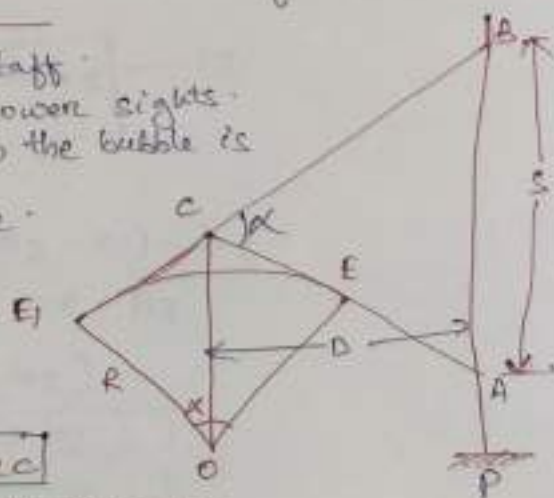 staff.
lower sights.
the bubble is
B
S
C
α
E
E1
D
R
A
α
O
P